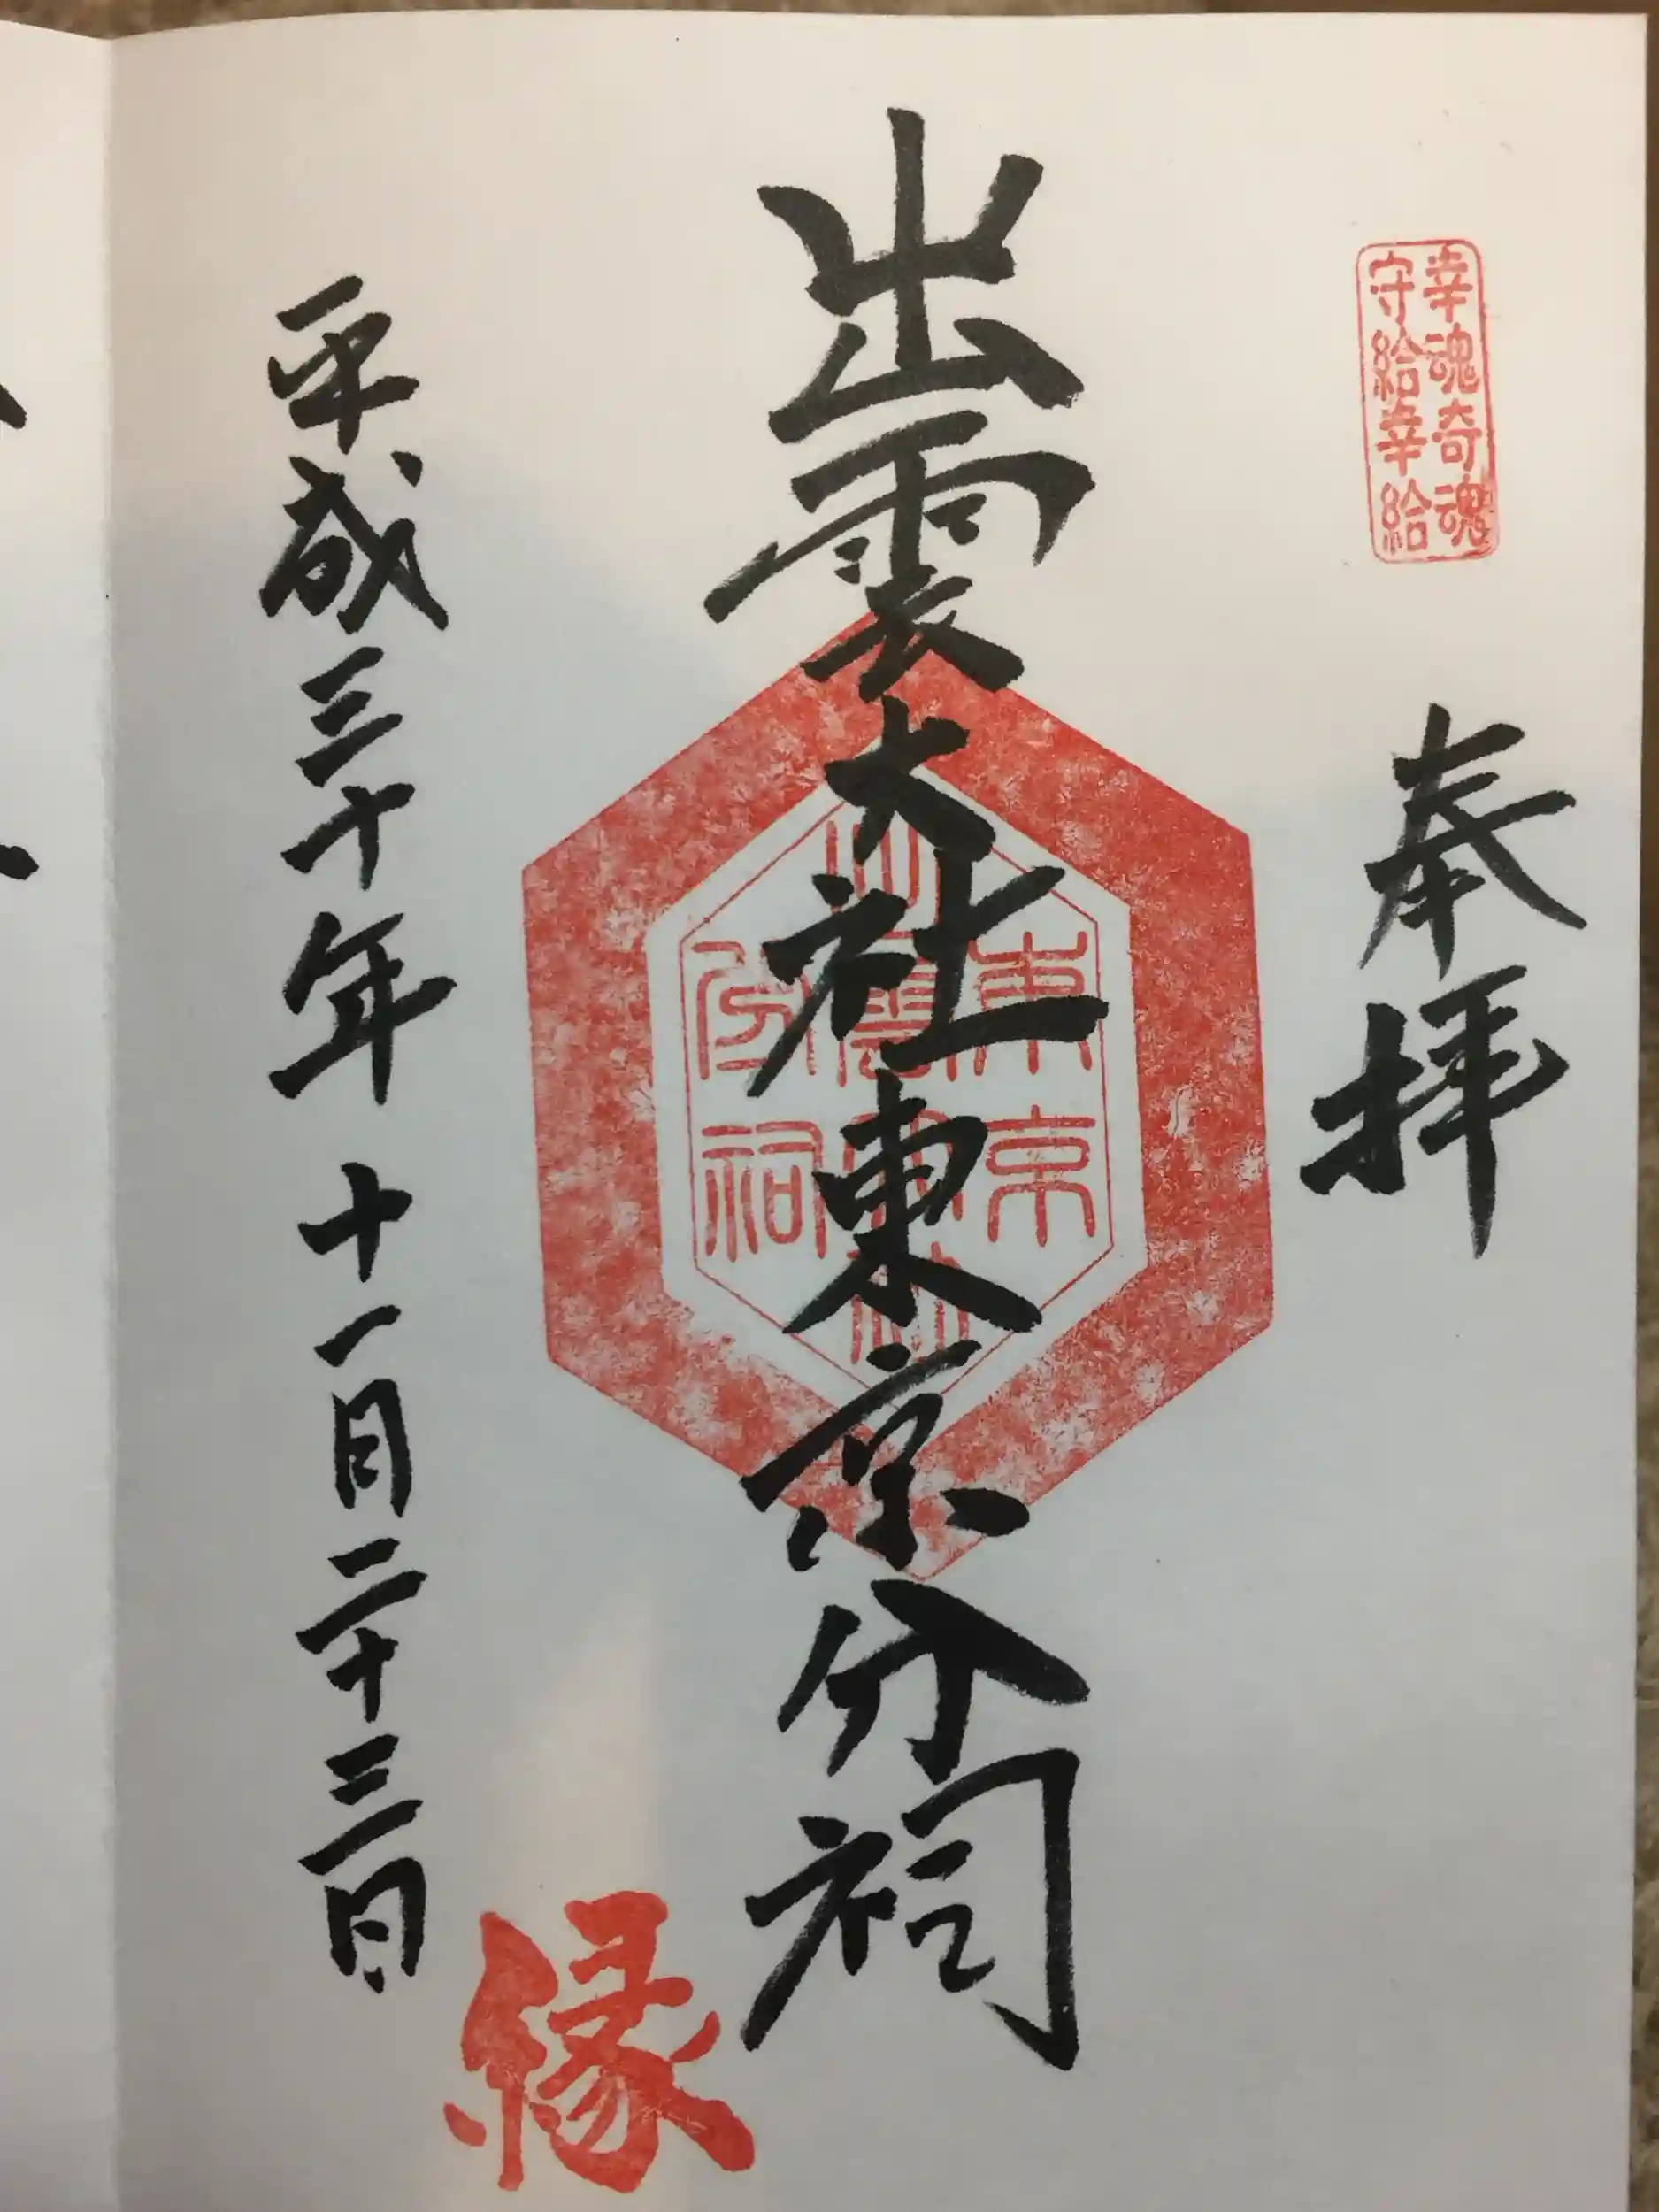 幸魂奇魂
守給幸給
奉拝
出雲大社東京分祠
東京
出雲大社
分祠
縁
平成三十年十一月二十三日